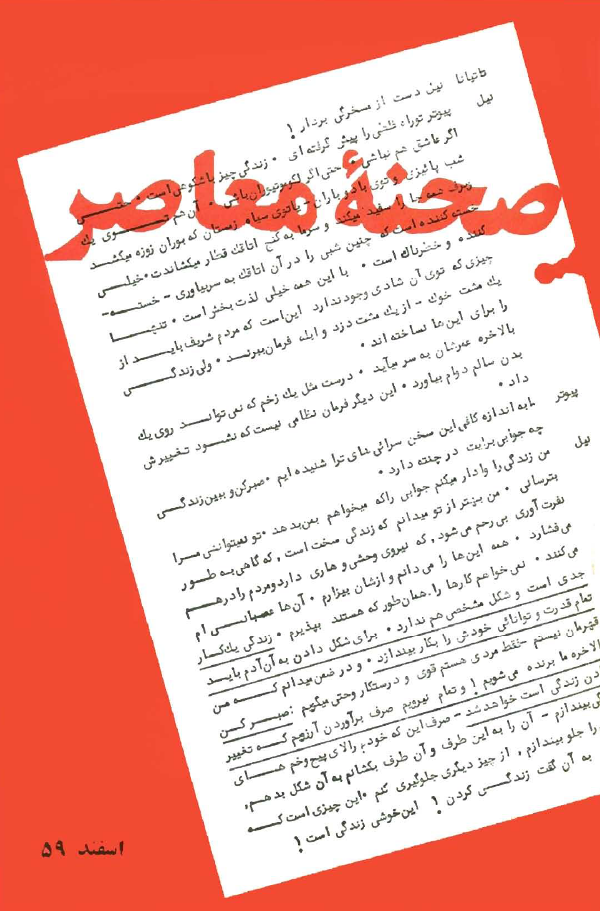 صحنهٔ معاصر
تاتیانا نیل دست از مسخرگی بردار !
نیل پیوتر توراه غلطی را پیش گرفته‌ای . زندگی چیز باشکوهی است . حتی
اگر عاشق هم نباشی . حتی اگر لکوموتیوران باشی . آن هم توی یک
شب پائیزی و توی باد و باران - یا توی سیاه زمستان که بوران زوزه میکشد
وبرف همه جا را سفید میکند و سرما به کنج اتاقک قطار میکشاندت . خیلی
خسته کننده است که چنین شبی را در آن اتاقک به سر بیاوری - خسته -
کننده و خطرناک است . با این همه خیلی لذت بخش است . تنها
چیزی که توی آن شادی وجود ندارد این است که مردم شریف باید از
یک مشت خوک - از یک مشت دزد و ابله فرمان ببرند . ولی زندگی
را برای این‌ها نساخته اند .
بالاخره عمرشان به سر میآید . درست مثل یک زخم که نمی توانـد روی یک
بدن سالم دوام بیاورد . این دیگر فرمان نظامی نیست که نشود تغییرش
داد .
پیوتر به اندازه کافی این سخن سرائی های ترا شنیده ایم . صبرکن و ببین زندگی
چه جوابی برایت در چنته دارد .
نیل من زندگی را وادار میکنم جوابی را که میخواهم بمن بدهد . تو نمیتوانی مرا
بترسانی . من بهتر از تو میدانم که زندگی سخت است ، که گاهی به طور
نفرت آوری بی رحم می شود , که نیروی وحشی و هاری دارد و مردم را درهم
می فشارد . همه این ها را می دانم و ازشان بیزارم . آن ها عصبانی ام
می کنند . نمی خواهم کارها را همان طور که هستند بپذیرم . زندگی یک کار
جدی است و شکل مشخصی هم ندارد . برای شکل دادن به آن آدم باید
تمام قدرت و توانائی خودش را بکار بیندازد . و در ضمن میدانم که من
قهرمان نیستم فقط مردی هستم قوی و درستکار وحتی میگویم : صبر کن
بالاخره ما برنده می شویم ! و تمام نیرویم صرف برآوردن آرزویم که تغییر
دن زندگی است خواهد شد - صرف این که خودم رالای پیچ وخم های
بیندازم - آن را به این طرف و آن طرف بکشانم به آن شکل بدهم ,
را جلو بیندازم , از چیز دیگری جلوگیری کنم . این چیزی است که
به آن گفت زندگی کردن ! این خوشی زندگی است !
اسفند ۵۹